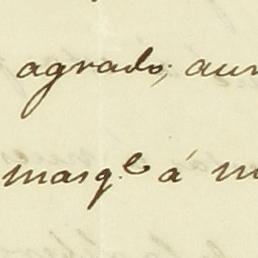 agrado; aun
masq.e á m